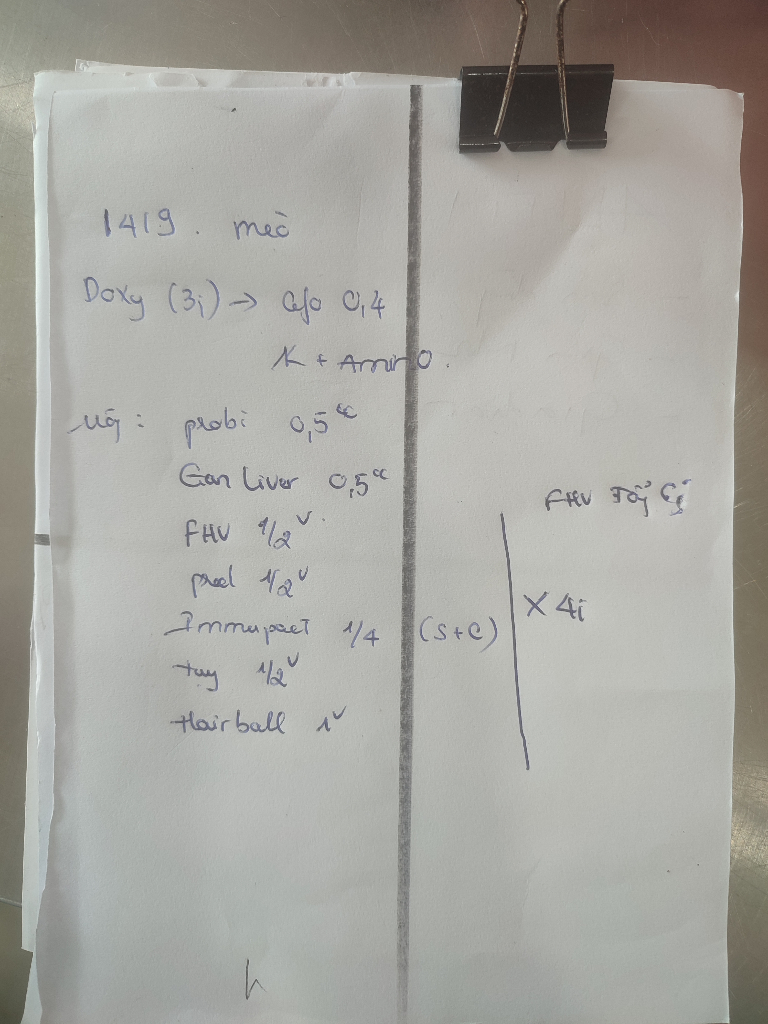 1419. mèo
Doxy (3i) → cefo 0,4
K + Amino.
uống: probi 0,5cc
Gan Liver 0,5cc
FHV 1/2v
FHV
pred 1/2v
Immupact 1/4 (S+C)
x 4i
tuỵ 1/2v
Hairball 1v